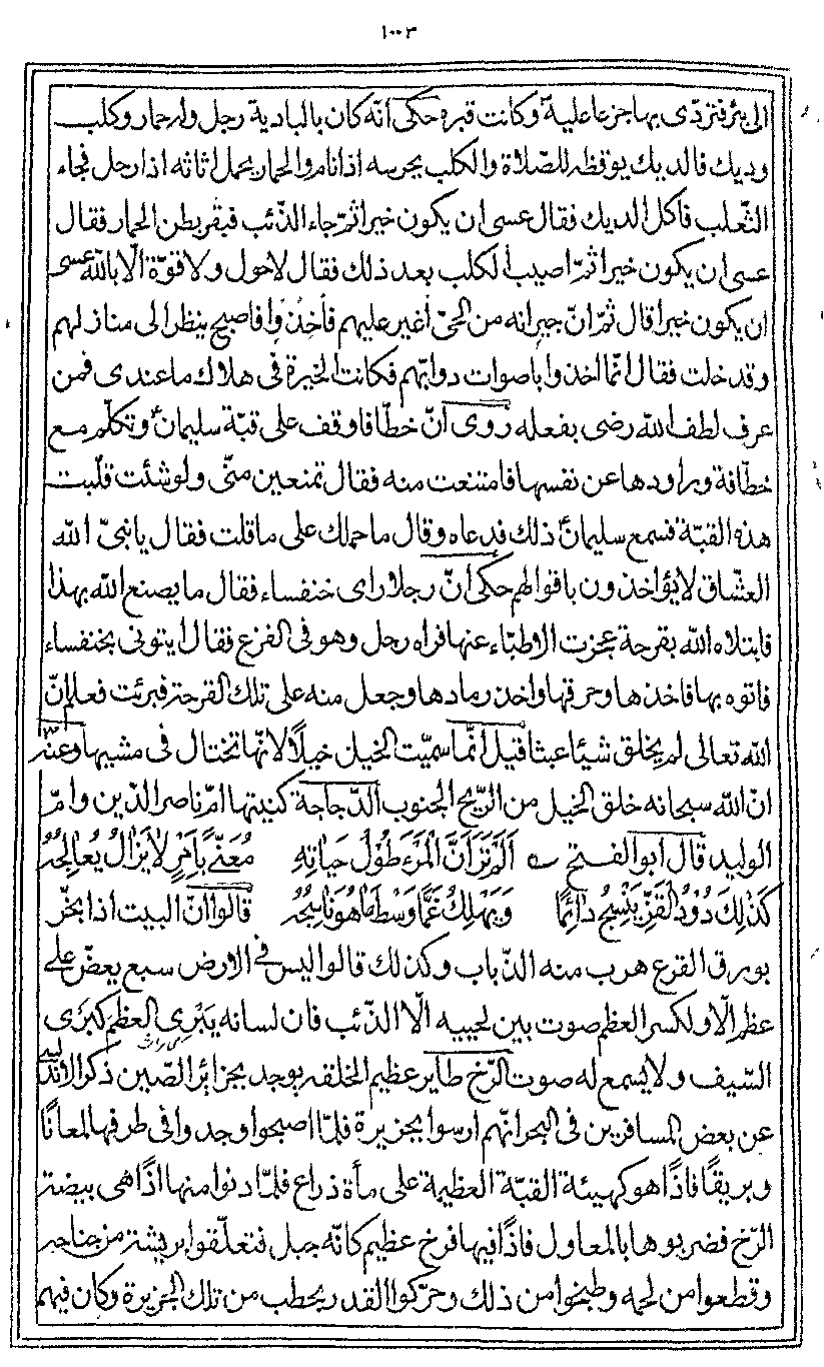 ١٠٠٣
الى بئر فتردّى بها جزعا عليه وكانت قبره حكى انّه كان بالبادية رجل وله حمار وكلب
وديك فالديك يوقظه للصّلاة والكلب يحرسه اذا نام والحمار يحمل اثاثه اذا رحل فجاء
الثّعلب فاكل الديك فقال عسى ان يكون خيرا ثمّ جاء الذّئب فبقر بطن الحمار فقال
عسى ان يكون خيرا ثمّ اصيب الكلب بعد ذلك فقال لاحول ولا قوّة الّا بالله عسى
ان يكون خيرا قال ثمّ انّ جيرانه من الحىّ أغير عليهم فأخِذُوا فاصبح ينظر الى منازلهم
وقد خلت فقال انّما اخذوا باصوات دوابّهم فكانت الخيرة فى هلاك ما عندى فمن
عرف لطف الله رضى بفعله روى انّ خطّافا وقف على قبّة سليمان ع وتكلّم مع
خطّافة وراودها عن نفسها فامتنعت منه فقال تمنعين منّى ولو شئت قلبت
هذه القبّة فسمع سليمان ع ذلك فدعاه وقال ما حملك على ما قلت فقال يا نبىّ الله
العشّاق لا يؤاخذون باقوالهم حكى انّ رجلا راى خنفساء فقال ما يصنع الله بهذا
فابتلاه الله بقرحة عجزت الاطبّاء عنها فراه رجل وهو فى الفزع فقال ايتونى بخنفساء
فاتوه بها فاخذها وحرقها واخذ رمادها وجعل منه على تلك القرحة فبرئت فعلم انّ
الله تعالى لم يخلق شيئا عبثا قيل انّما سمّيت الخيل خيلًا لانّها تختال فى مشيها وعنه ص
انّ الله سبحانه خلق الخيل من الرّيح الجنوب الدّجاجة كنيتها امّ ناصر الدّين وامّ
الوليد قال ابو الفتح اَلَمْ تَرَ اَنَّ الْمَرْءَ طُولَ حَيَاتِهِ مُعَنًّى بِاَمْرٍ لَا يَزَالُ يُعَالِجُهُ
كَذَلِكَ دُودُ الْقَزِّ يَنْسِجُ دَائِمًا وَيَهْلِكُ غَمًّا وَسْطَ مَا هُوَ نَاسِجُهُ قالوا انّ البيت اذا بخّر
بورق القرع هرب منه الذّباب وكذلك قالوا ليس فى الارض سبع يعضّ على
عظم الّا ولكسر العظم صوت بين لحييه الّا الذّئب فان لسانه يَبْرِى العظم كبَرْى
السّيف ولا يسمع له صوت الرّخ طاير عظيم الخلقه يوجد بجزائر الصّين ذكر الاندلسى
عن بعض المسافرين فى البحر انّهم ارسوا بجزيرة فلمّا اصبحوا وجدوا فى طرفها لمعانًا
وبريقًا فاذًا هو كهيئة القبّة العظيمة على مأة ذراع فلمّا دنوا منها اذًا هى بيضة
الرّخ فضربوها بالمعاول فاذًا فيها فرخ عظيم كانّه جبل فتعلّقوا بريشة من جناحه
وقطعوا من لحمه وطبخوا من ذلك وحرّكوا القدر بحطب من تلك الجزيرة وكان فيهم